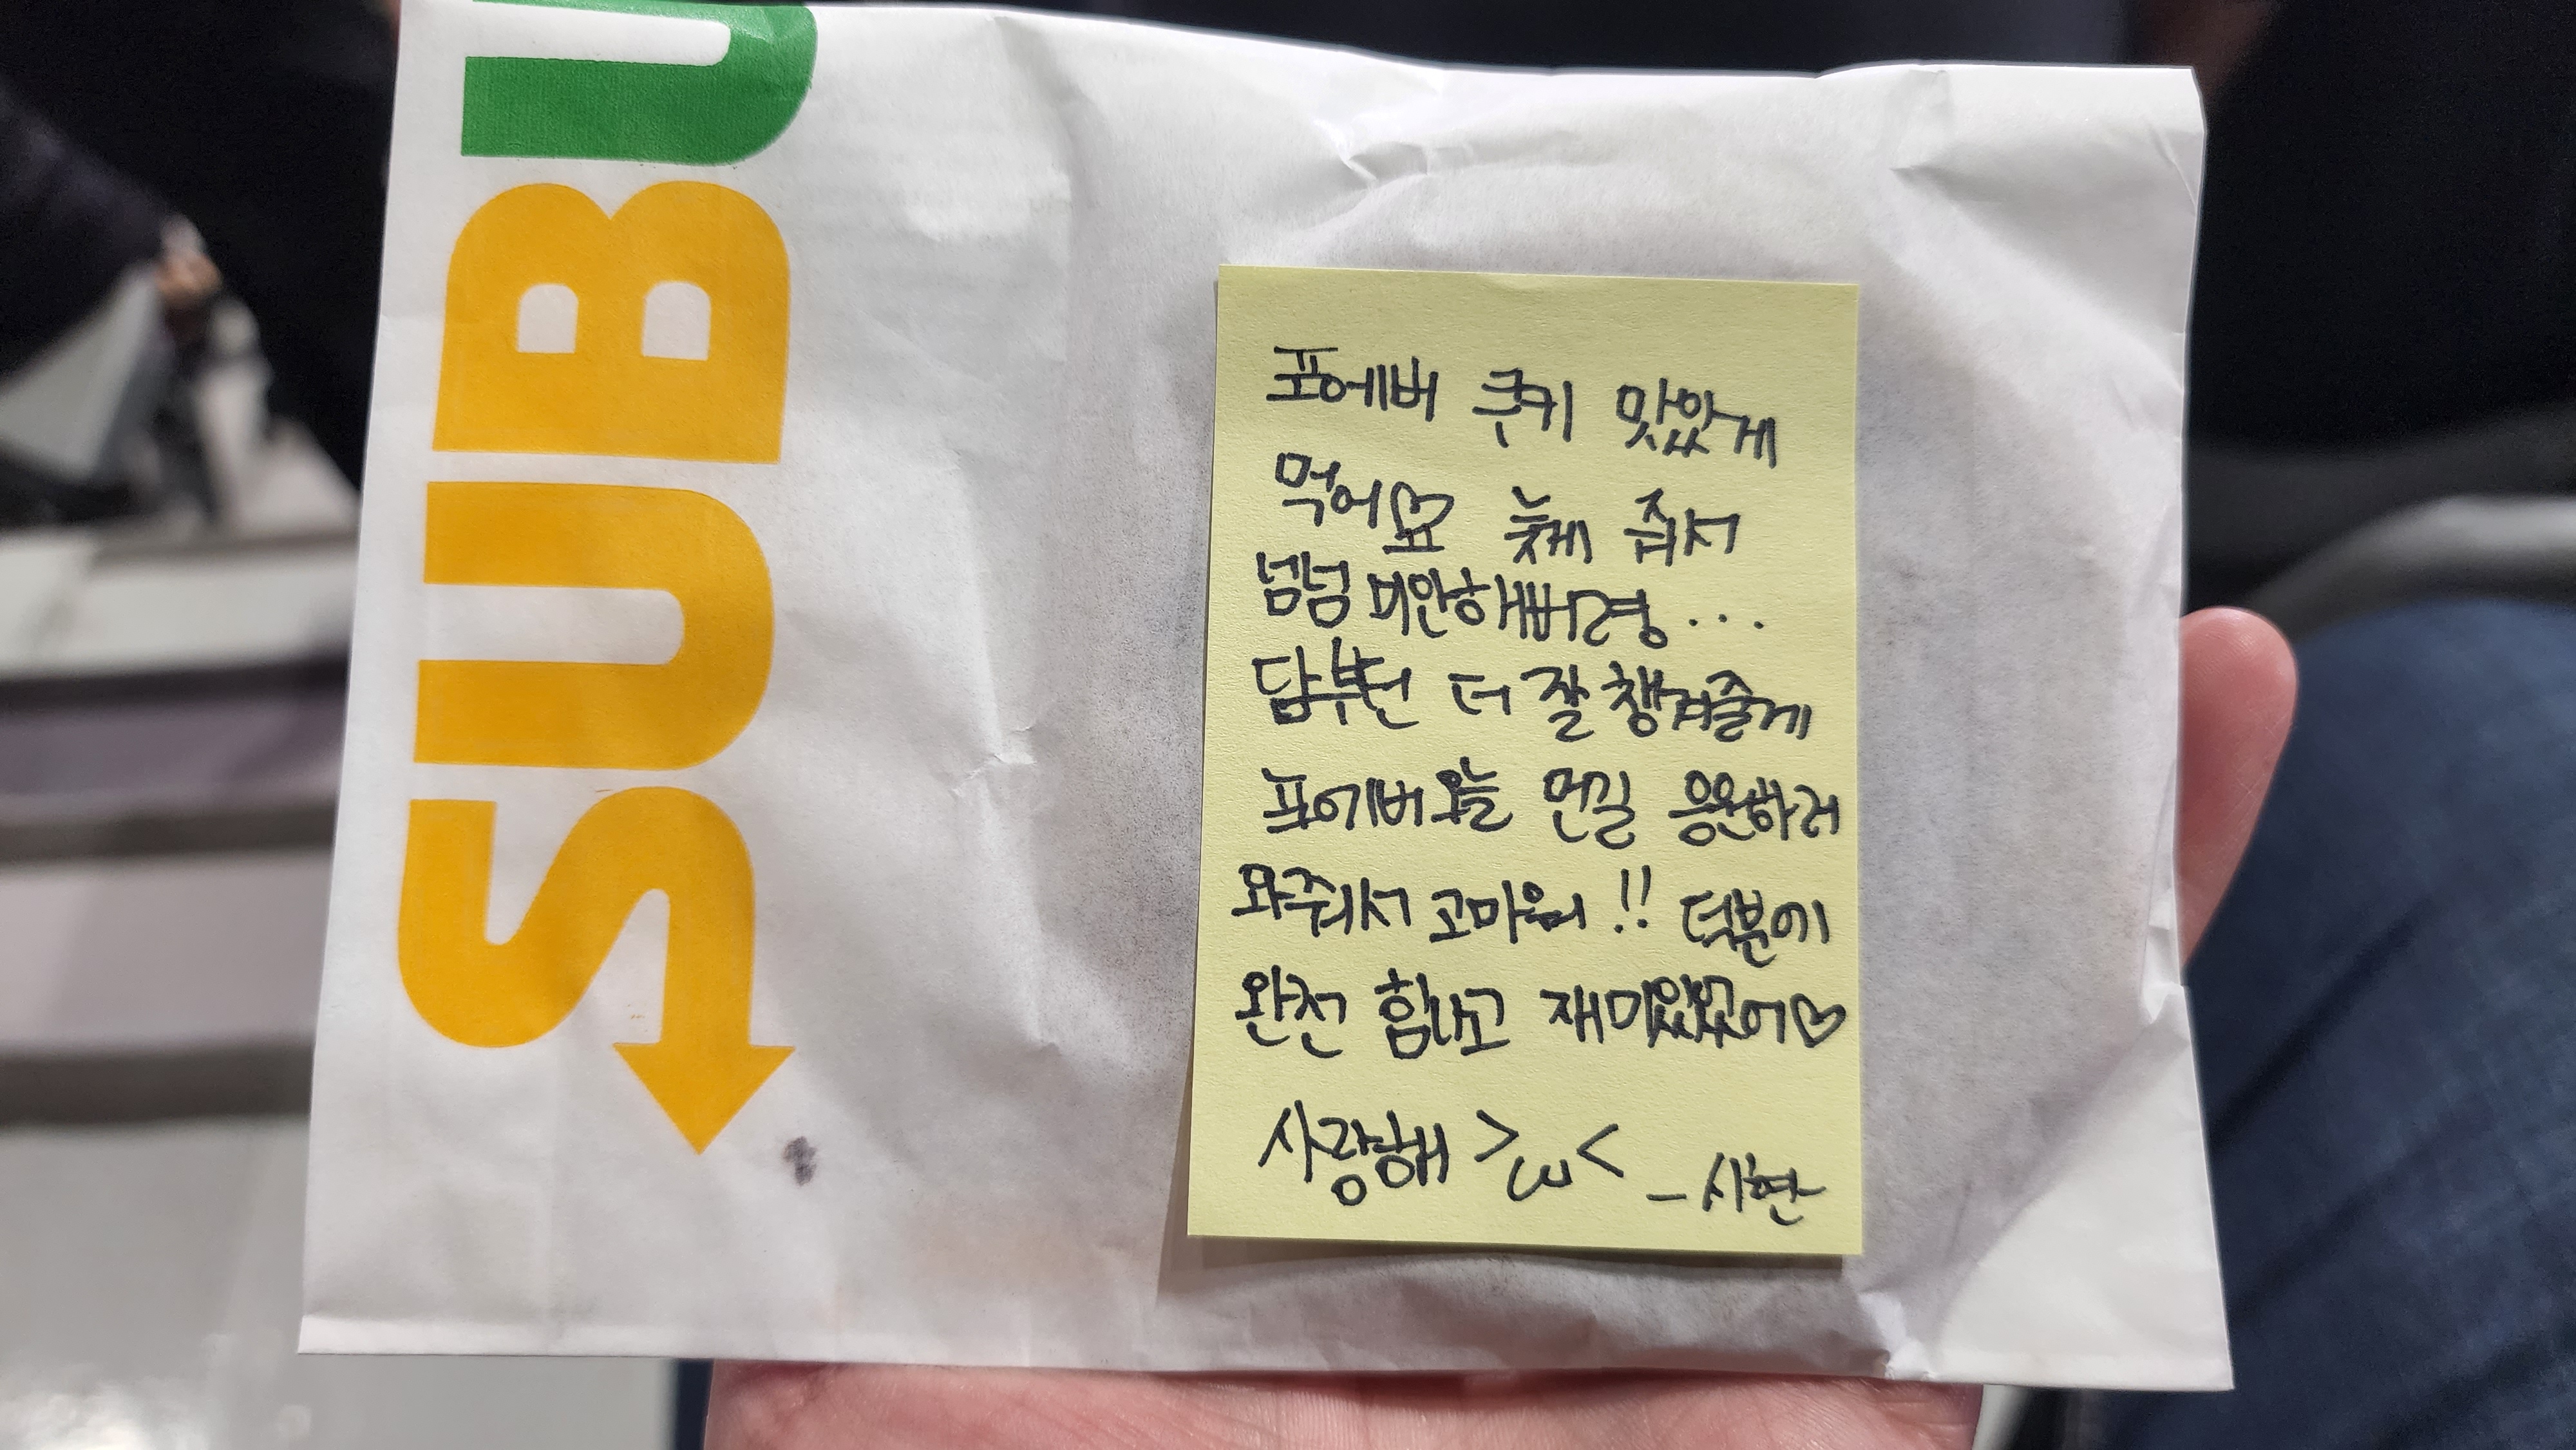 SUBU
포에버 쿠키 맛있게
먹어♡요 늦게 줘서
넘넘 미안해버령...
담부턴 더 잘 챙겨줄게
포에버 오늘 먼길 응원하러
와줘서 고마워!! 덕분에
완전 힘나고 재미있었어♡
사랑해 >ω< -시현-